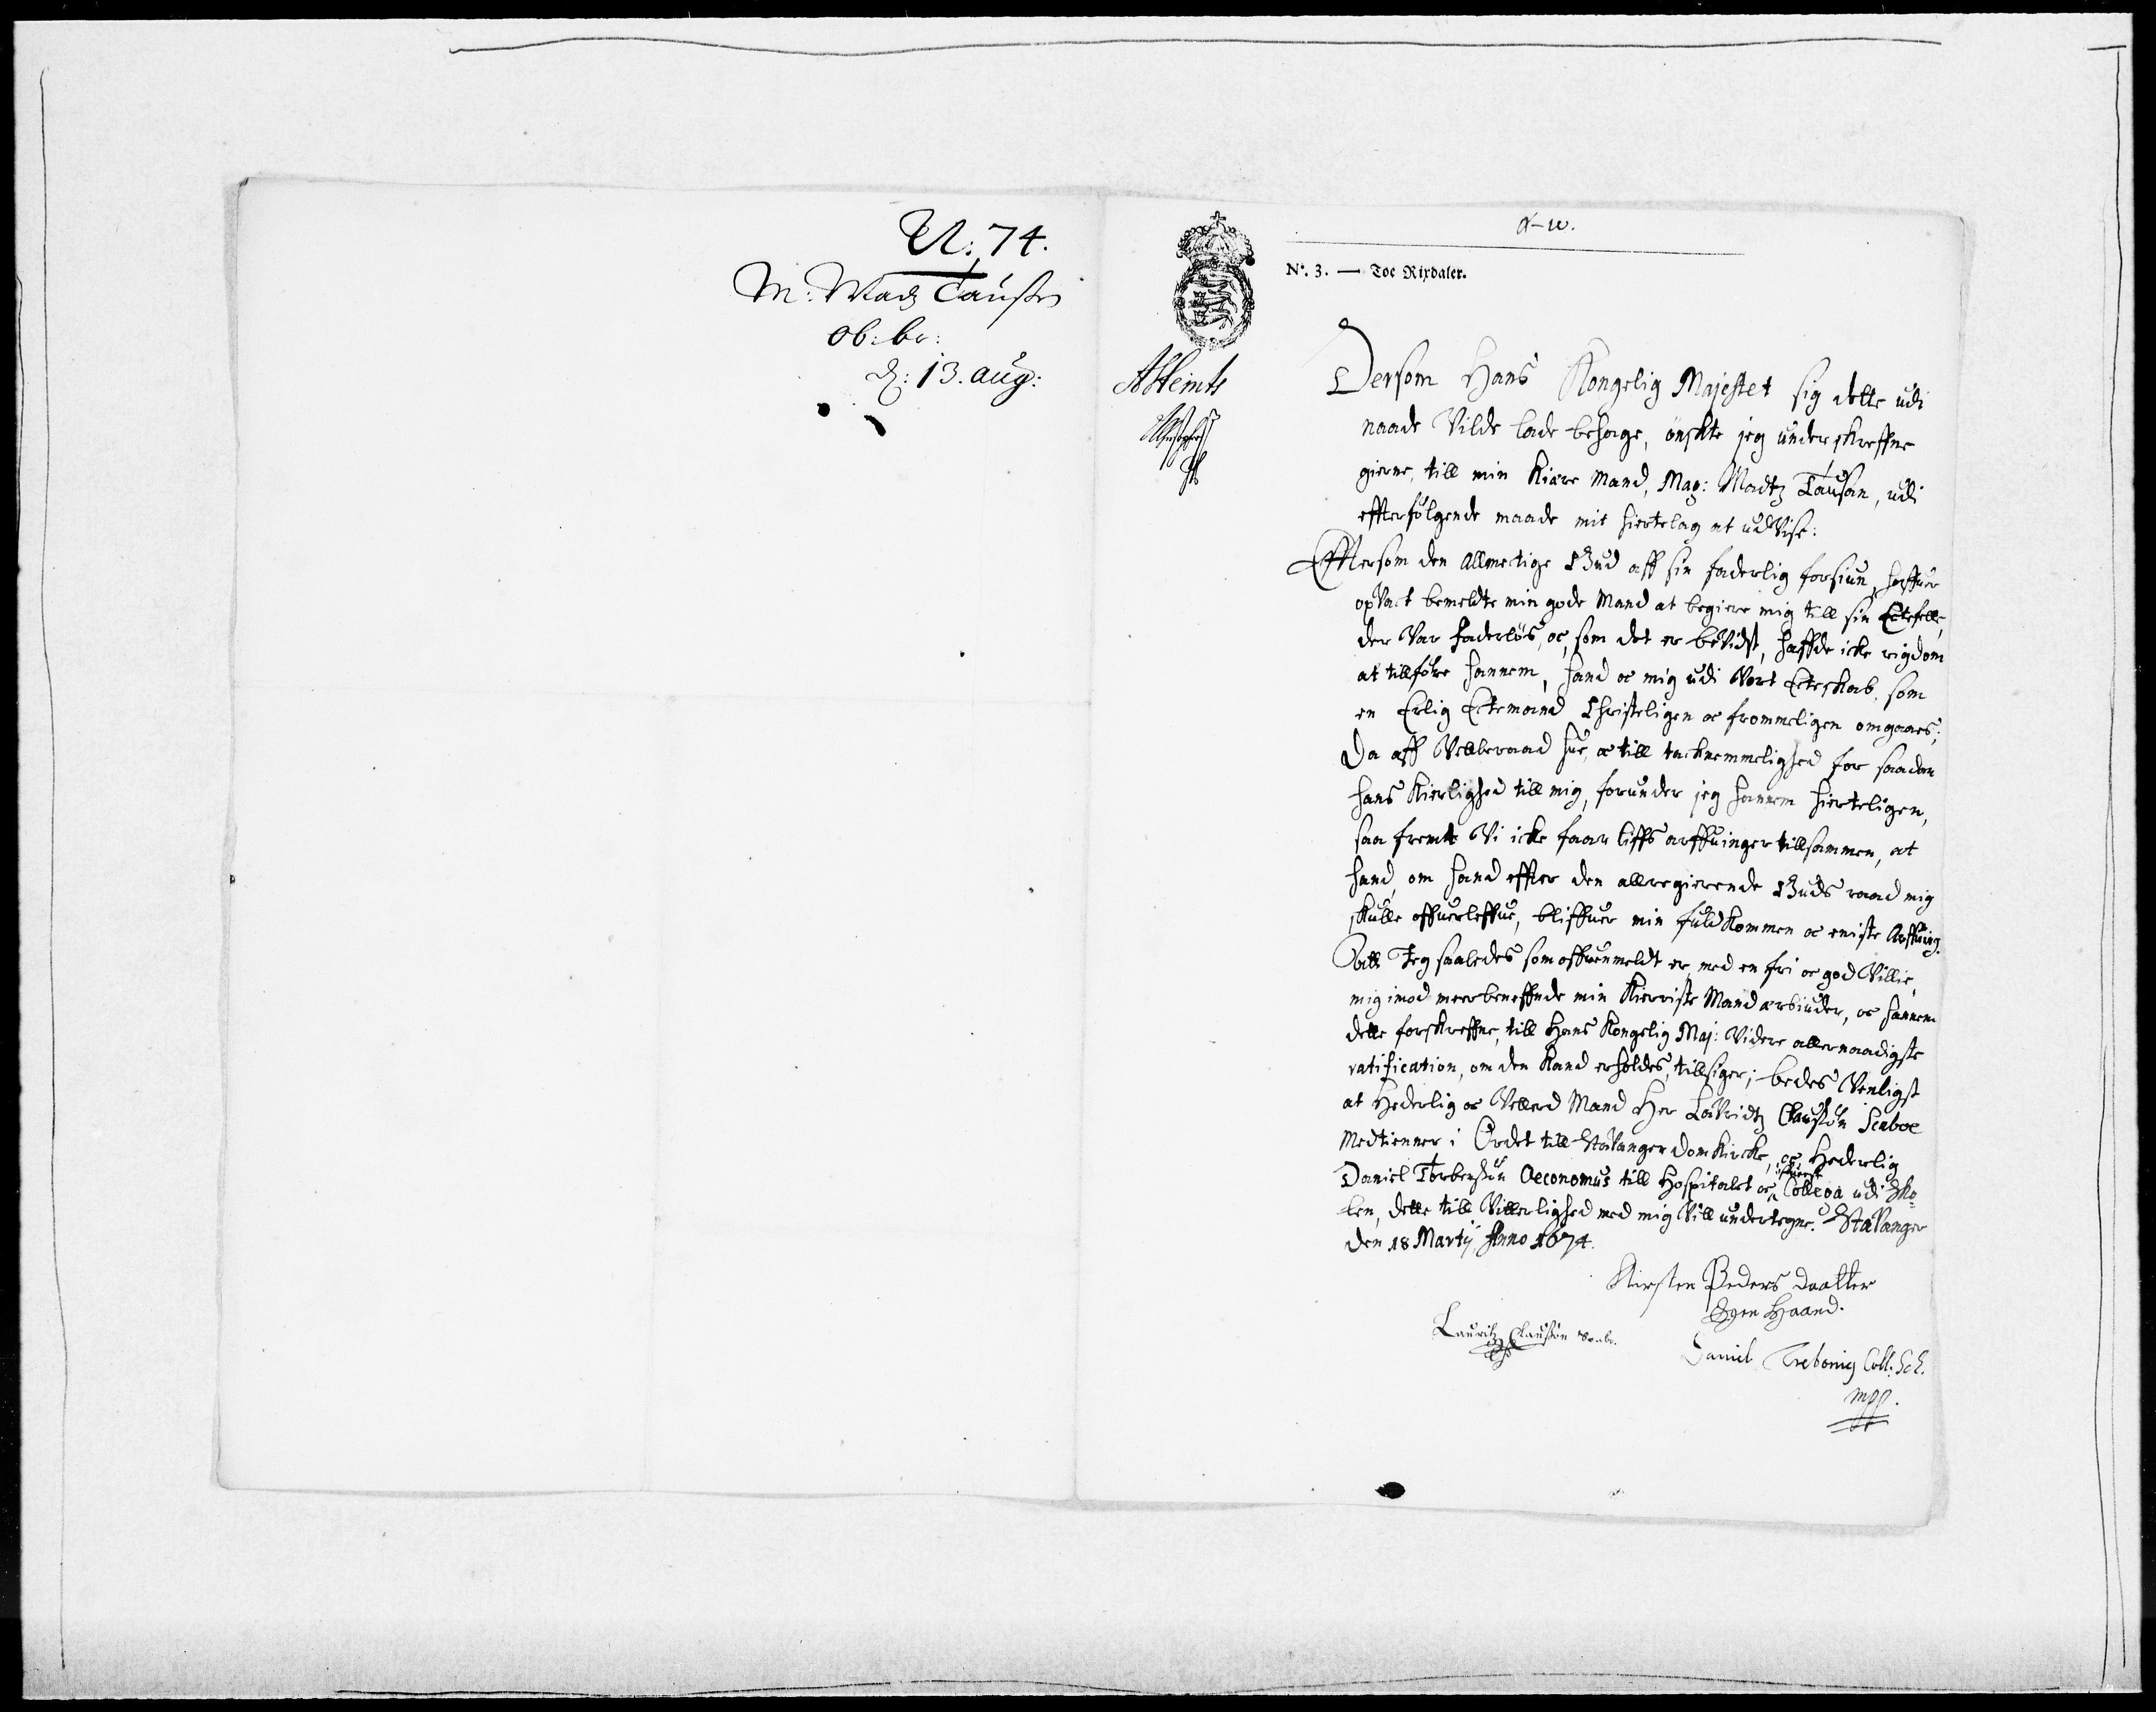 N: 74.
M: Madz Taussen
ob: br:
d: 13. aug:
N°. 3. — Toe Rixdaler.
AHeints
Dersom Hans Kongelig Majestet sig dette udi
naade Vilde lade behage, ønskte jeg underskreffne
gierne, till min Kiære Mand, Mag: Madtz Tausan, udi
effterfølgende maade mit hiertelag at udVise:
Efftersom den Allmectige Gud aff sin faderlig forsiun, haffuer
opVact bemeldte min gode Mand at begiere mig till sin Ectefelle,
der Var faderløs, oc, som det er beVidst, haffde icke rigdom
at tillføre hannem, hand oc mig udi Vort Ecteskab, som
en Erlig Ectemand Christeligen oc frommeligen omgaaes;
Da aff Vellberaad hue, oc till tacknemmelighed for saadan
hans Kierlighed till mig, forunder jeg hannem hierteligen,
saa fremt Vi icke faar liffs arffuinger tillsammen, at
hand, om hand effter den allregierende Guds raad mig
skulle offuerleffue, bliffuer min fuldkommen oc eniste Arffuing.
Att Jeg saaledes som offuenmeldt er, med en fri oc god Villie,
mig imod meerbeneffnde min Kierriste Mand erbiuder, oc hannem
dette forskreffne, till Hans Kongelig Maj: Videre allernaadigste
ratification, om den Kand erholdes, tillsiger; bedes Venligst
at Hederlig oc Vellerd Mand Her LaVridtz Claussøn Scaboe
Medtienner i Ordet till StaVanger Domkircke, oc Hederlig
Daniel Torbenssøn Oeconomus till Hospitalet oc öffuerste Collega udi Sko-
len, dette till Vitterlighed med mig Vill undertegne. StaVanger
den 18 Martij, Anno 1674.
Kirsten Peders Daatter
Egen Haand.
Lauritz Claussøn Scabo.
Daniel Trebonig Coll. Sch.
mpp.